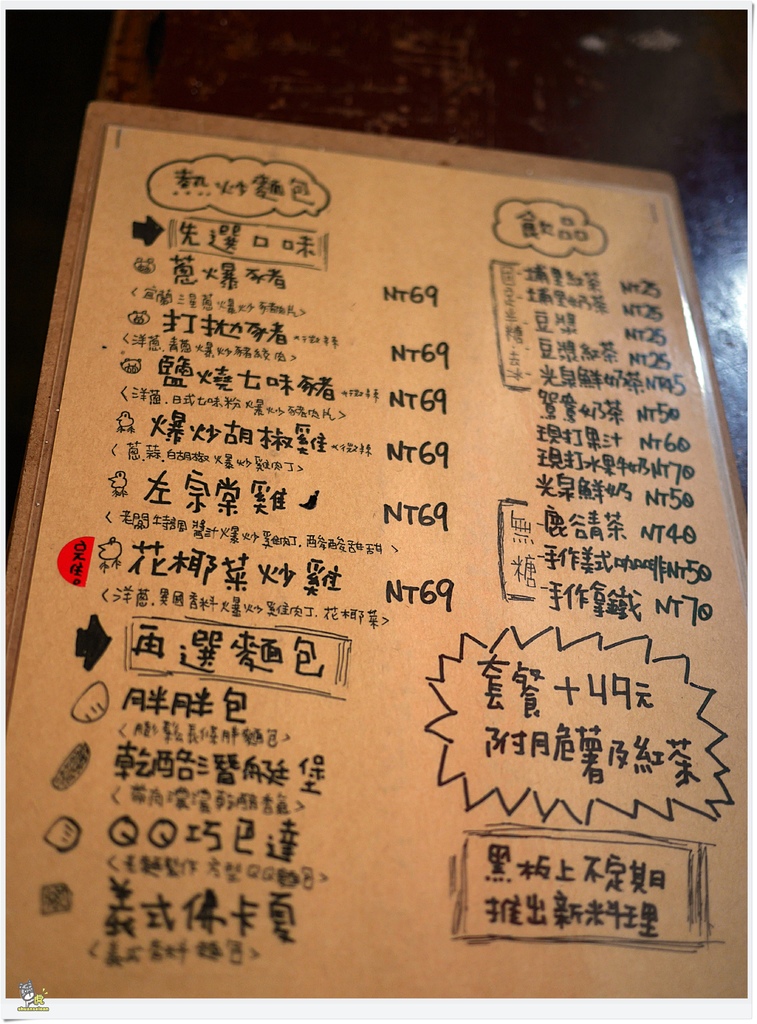 熱炒麵包
先選口味
蔥爆豬 NT69
<宜蘭三星蔥爆炒豬肉片>
打拋豬 *微辣 NT69
<洋蔥.青蔥爆炒豬絞肉>
鹽燒七味豬 *微辣 NT69
<洋蔥.日式七味粉爆炒豬肉片>
爆炒胡椒雞 *微辣 NT69
<蔥.蒜.白胡椒爆炒雞肉丁>
左宗棠雞 NT69
<老闆特調醬汁爆炒雞肉丁.酸酸甜甜>
花椰菜炒雞 NT69
<洋蔥.異國香料爆炒雞肉丁.花椰菜>
再選麵包
胖胖包
<膨鬆長條胖麵包>
乾酪潛艇堡
<帶有濃濃乾酪香氣>
QQ巧巴達
<老麵製作 方型QQ麵包>
義式佛卡夏
<義式香料麵包>
飲品
埔里紅茶 NT25
埔里奶茶 NT25
豆漿 NT25
豆漿紅茶 NT25
光泉鮮奶茶
鴛鴦奶茶 NT50
現打果汁 NT60
現打水果牛奶 NT70
光泉鮮奶 NT50
無糖
鹿谷青茶 NT40
手作美式咖啡 NT50
手作拿鐵 NT70
套餐+49元
附脆薯及紅茶
黑板上不定期
推出新料理